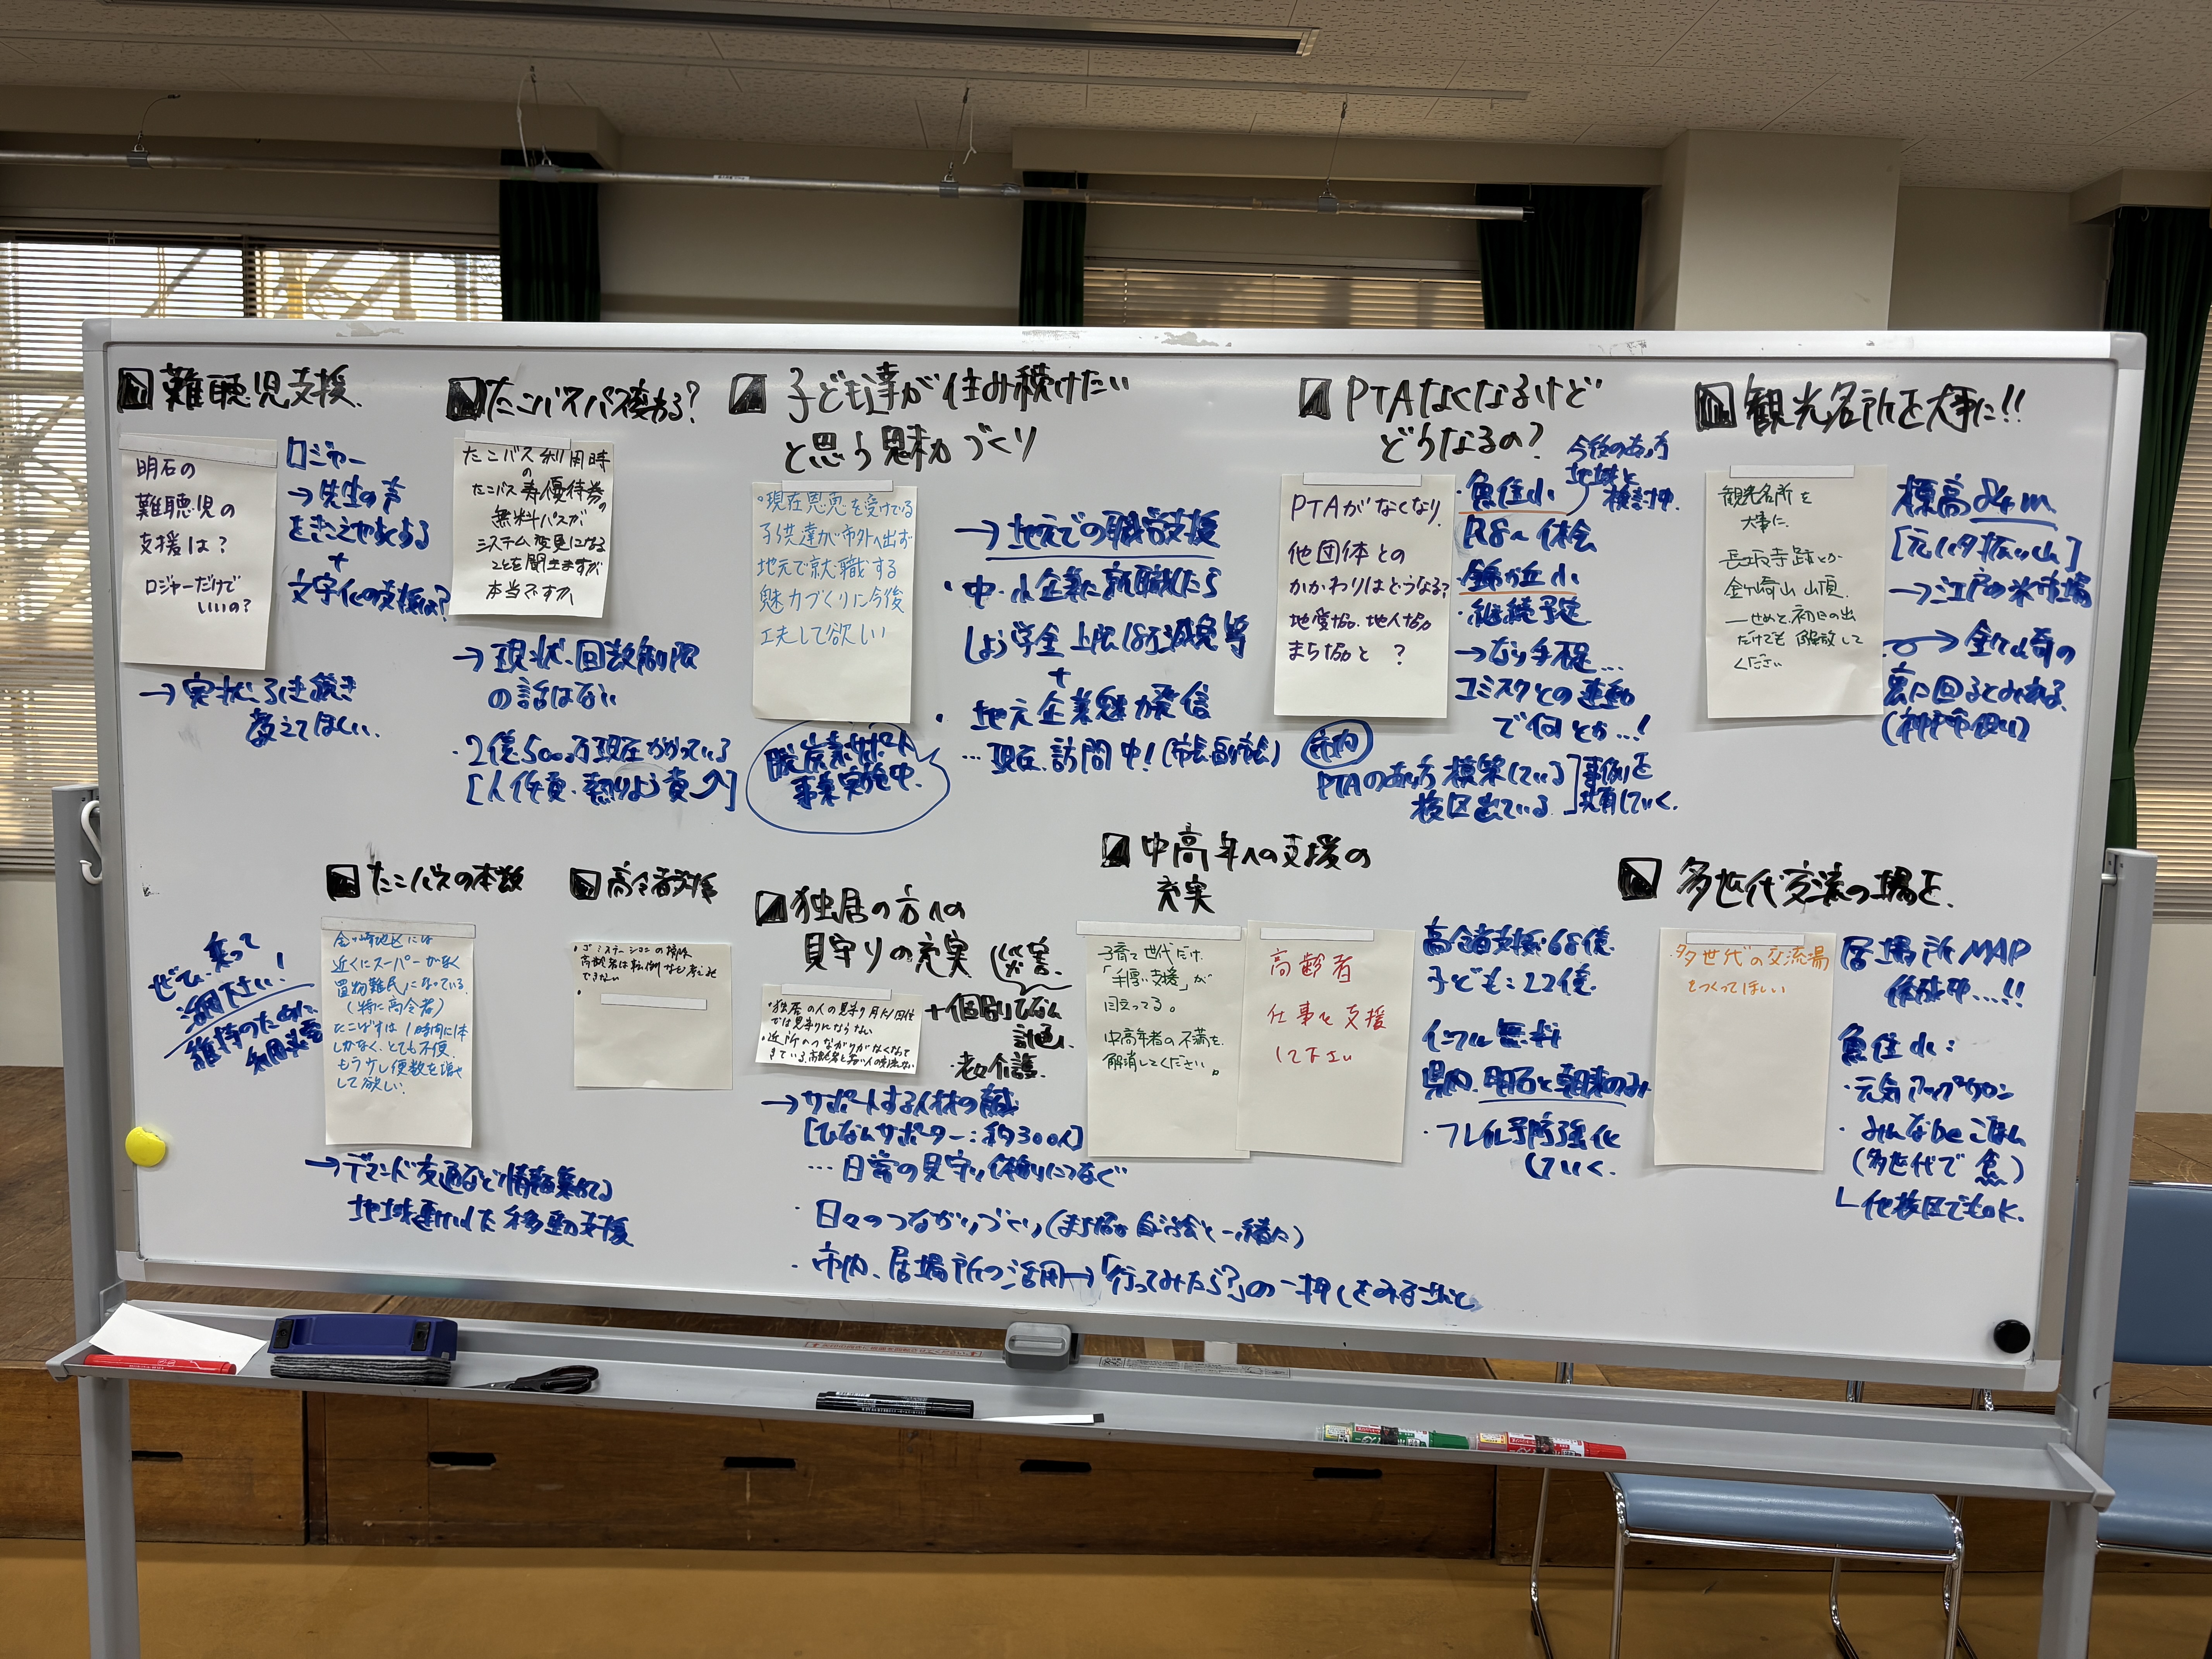 難聴児支援
明石の
難聴児の
支援は？
ロジャーだけで
いいの？
ロジャー
→先生の声
をきこえやすくする
+
文字化の支援は？
→実状引き続き
教えてほしい.
たこバスパス変わる？
たこバス利用時
の
たこバス寿優待券の
無料パスが
システム変更になる
ことを聞きますが
本当ですか、
→現状、回数制限
の話はない
・2億500万現在かかっている
[人件費、
子ども達が住み続けたい
と思う魅力づくり
・現在恩恵を受けている
子供達が市外へ出ず
地元で就職する
魅力づくりに今後
工夫して欲しい
→地元での就労支援
・中・小企業に就職したら
しょう学金上限18万減免等
+
・地元企業魅力発信
…現在、訪問中！(市長副市長)
脱炭素サポート
事業実施中.
PTAなくなるけど
どうなるの？
PTAがなくなり、
他団体との
かかわりはどうなる？
地愛協、地人協
まち協と？
今後のあり方
地域と
検討中.
・魚住小
R8〜休会
錦が丘小
・継続予定
→なり手不足…
コミスクとの連動
で何とか…！
市内
PTAのあり方模索している
校区出ている
事例を
共有していく.
観光名所を大事に!!
観光名所を
大事に.
長坂寺跡とか
金ヶ崎山山頂.
―せめて初日の出
だけでも開放して
ください
標高84m
[元い旗振り山]
→江戸の米市場
→金ヶ崎の
裏に回るとみれる.
(神戸市側)
たこバスの本数
金ヶ崎地区には
近くにスーパーがなく
買物難民になっている.
(特に高令者)
たこばすは1時間に1本
しかなく、とても不便.
もう少し便数を増や
して欲しい.
ぜひ、乗って
活用下さい！
維持のために
利用必要
→デマンド交通など情報集めてる
地域運行した移動支援
高令者支援
・ゴミステーションの掃除
高齢者は転倒など考えると
できない
・
独居の方への
見守りの充実
・独居の人の見守り月たった1回位
では見守りにならない
・近所のつながりがなくなって
きている、高齢者と若い人の交流がない
(災害.
+個別ひなん
計画、
・老々介護.
→サポートする人材の育成
[ひなんサポーター：約300人]
… 日常の見守り体制につなぐ
・日々のつながりづくり(まち協、自治会と一緒に)
・市内、居場所の活用→「行ってみたら？」の一押しをみなさんと
中高年への支援の
充実
子育て世代だけ、
「手厚い支援」が
目立ってる。
中高年者の不満を、
解消してください。
高齢者
仕事を支援
して下さい
高令者支援：68億.
子ども：22億.
インフル無料
県内、明石と朝来のみ
・フレイル予防強化
していく.
多世代交流の場を.
・多世代の交流場
をつくってほしい
居場所MAP
作成中…!!
魚住小：
・元気アップサロン
・みんなdeごはん
(多世代で集)
└他校区でもOK.